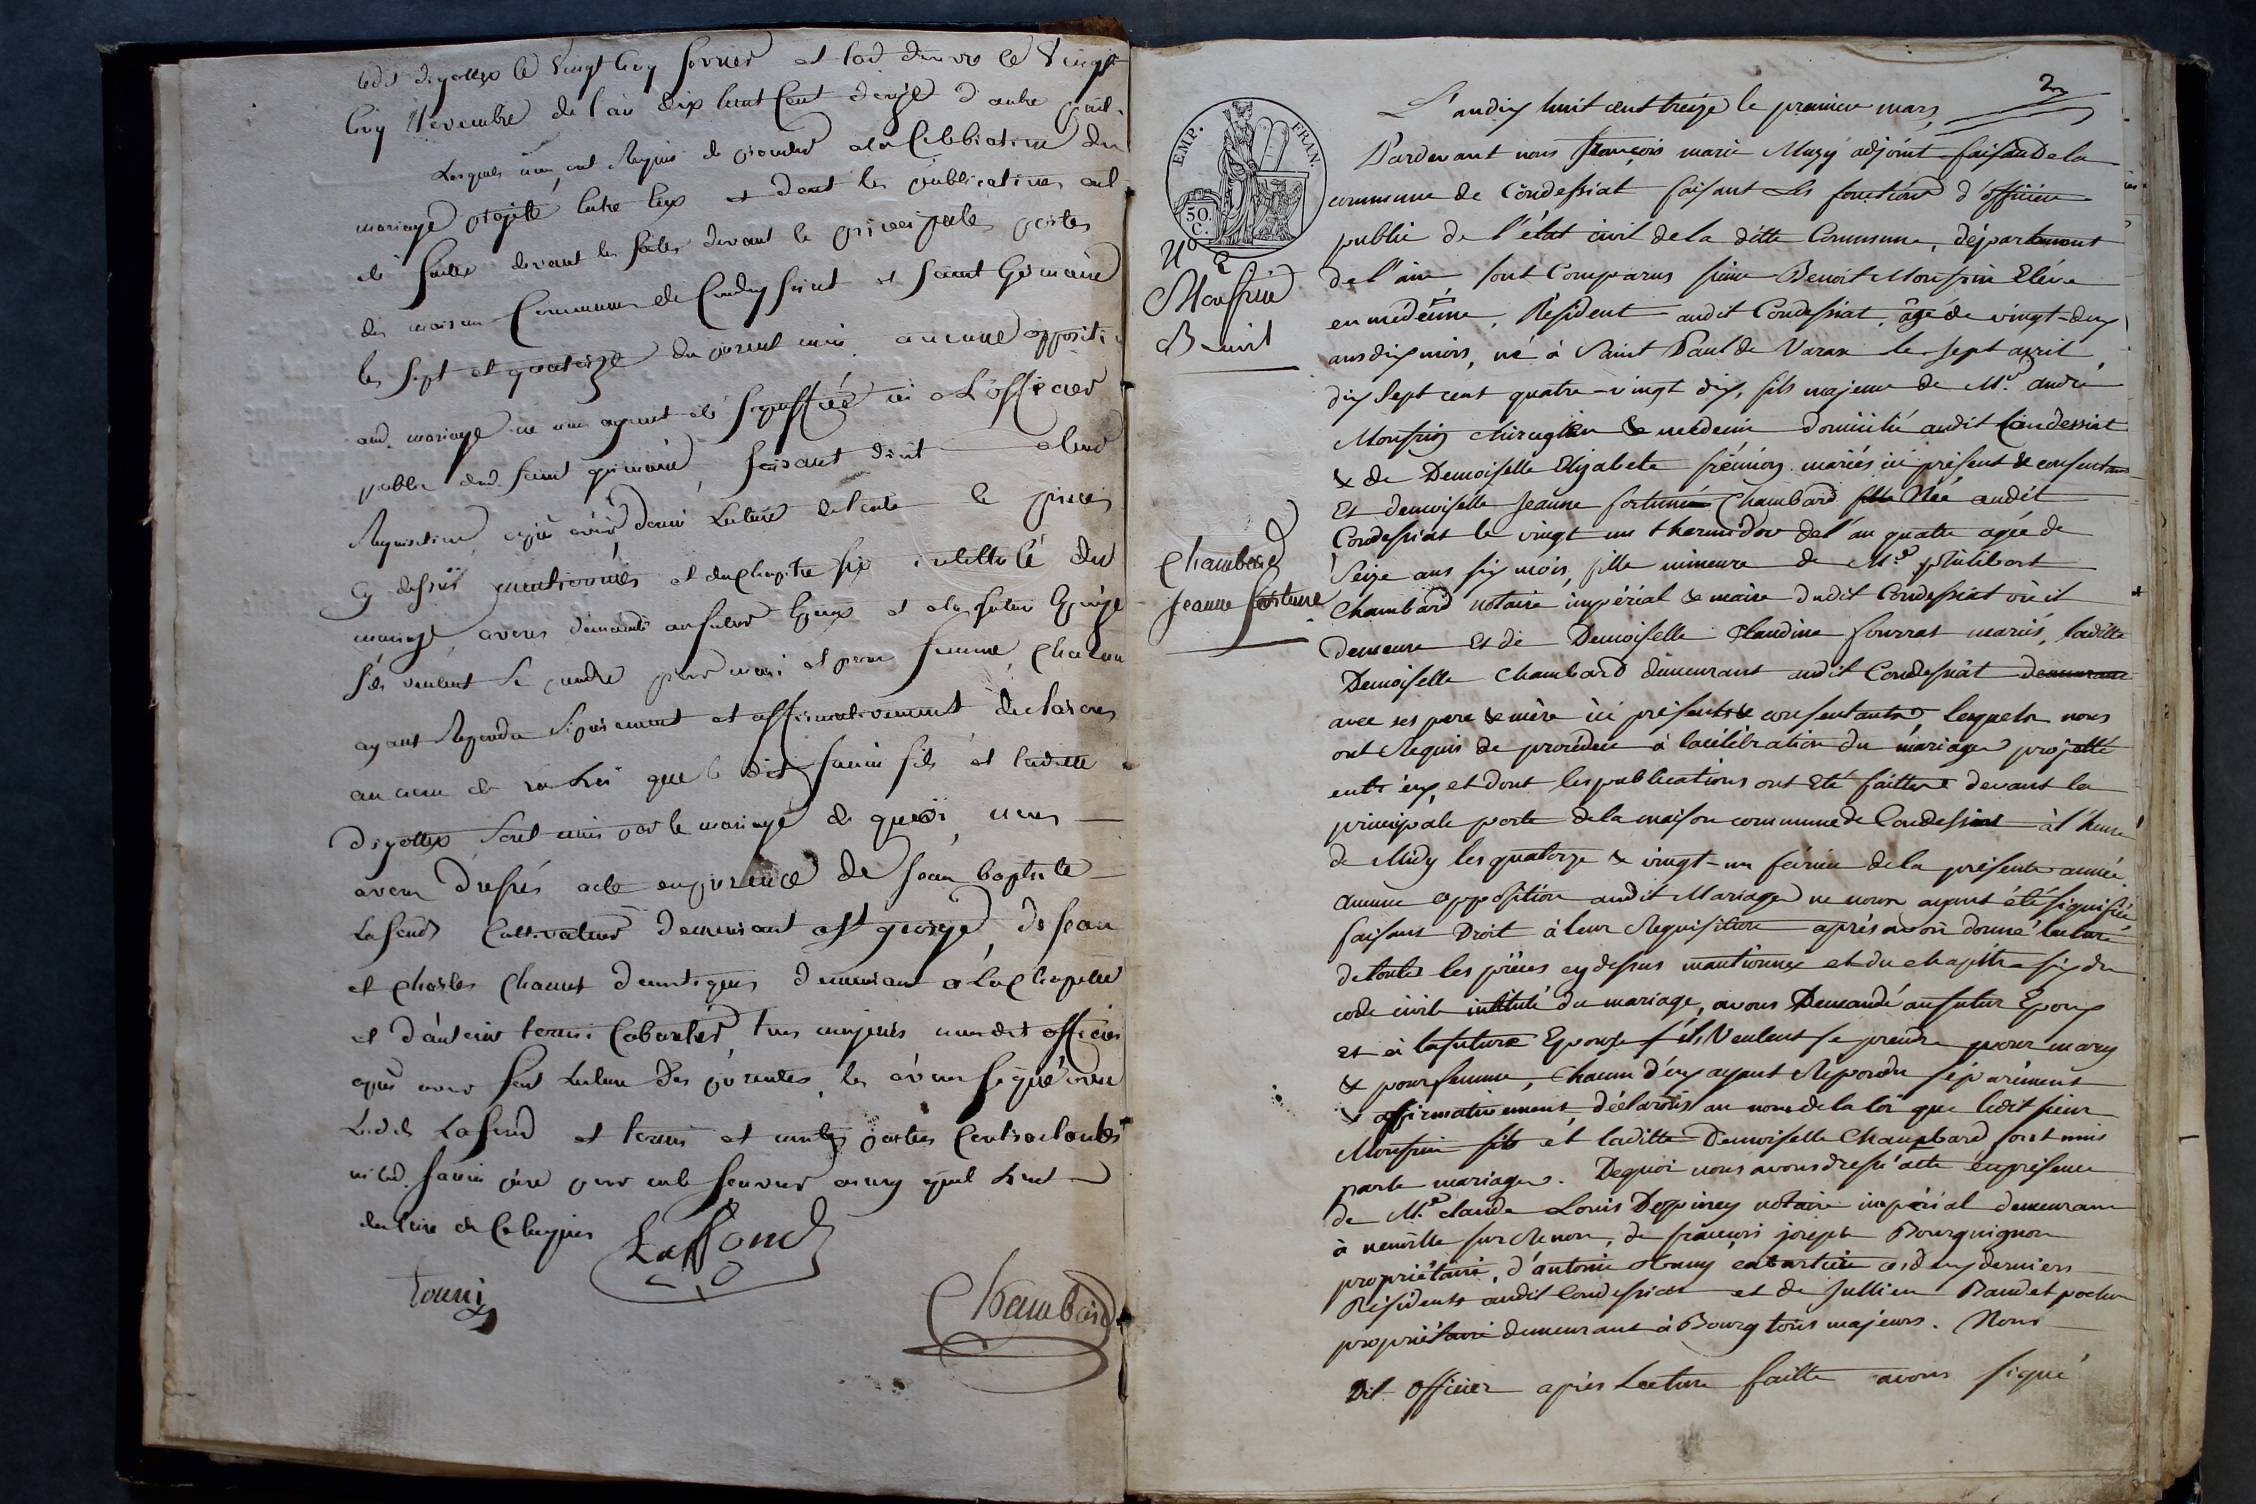 ledit digollex le vingt cinq fevrier et lad. du vo le vingt
cinq novembre de l'an dix huit cent douze d'autre part
Lesquels nous ont Requis de proceder a la Celebration du
mariage projetté entre eux et dont les publications ont
été faites devant les principales portes
des maison Communes de Condeyssiat et Saint Germain
les sept et quatorze du present mois aucune oppositi
aud. mariage ne nous ayant été signiffiée ni a L'officier
public dud. Saint germain, faisant droit a leur
Requisition, apres avoir donné Lecture de toute les pieces
cy dessus mentionnés et du chapitre six intitulé du
mariage, avons demandé au futur Epoux et a la future Epouze
s'ils veulent se prendre pour mari et pour femme, chacun
ayant Repondu Séparement et affirmativement declarons
au nom de la Loi que le dit fils et ladite
digollex sont unis par le mariage de quoi nous
avons dressés acte en presence de Jean baptiste
Lafond Cultivateur demeurant a St george, de Jean
et Charles Chanut demeurant a La Chapelle
et d'antoine Cabartier, tous majeurs nous dit officier
apres avoir fait Lecture des presentes, les avons signé avec
Lesd. Lafond et et non les parties Contractantes
ni led. père pour ne le Savoir
de ce Enquis
Laffond
Chambard
2
L'an dix huit cent treize le premier mars
Pardevant nous françois marie Muzy adjoint faisan De la
commune de Condessiat faisant les fonction d'officier
public de l'état civil de la ditte Commune, département
de l'ain, sont Comparus sieur Benoit Monfrin Elève
en medecine, Résident audit Condessiat, âgé de vingt-deux
ans dix mois, né à Saint Paul de Varax le sept avril
dix sept cent quatre-vingt dix, fils majeur de Mr. andré
Monfrin chirugien & médecin domicilié audit Condessiat
& de Demoiselle Elizabete frémion mariés ici présent & consentans
Et demoiselle Jeanne fortunée Chambard fille Née audit
Condessiat le vingt un thermidor de l'an quatre agée de
Seize ans six mois, fille mineure de Mr. philibert
Chambard notaire impérial & maire dudit Condessiat où il
demeure Et de Demoiselle Claudine fourrat mariés, laditte
Demoiselle Chambard demeurant audit Condessiat demeurant
avec ses pere & mère ici présents & consentants, lesquels nous
ont Requis de procéder à la célébration du mariage projetté
entr'eux, et dont les publications ont Eté faittes devant la
principale porte de la maison commune de Condessiat à l'heure
de Midy les quatorze & vingt-un février de la présente année
Aucune opposition audit Mariage ne nous ayant été signifiée
faisant Droit à leur Requisition après avoir donné lecture
de toutes les pièces cy dessus mantionnez et du chapitre six du
code civil intitulé du mariage, avons Demandé au futur Epoux
et à la future Epouze s'ils Veulent se prendre pour mary
& pour femme, chacun d'eux ayant Répondu séparément
& affirmativement, déclarons au nom de la loi que ledit sieur
Monfrin fils et laditte Demoiselle Chambard sont unis
par le mariage. De quoi nous avons dressé acte en présence
de Mr. claude Louis Despiney notaire impérial demeurant
à neuville sur Renon, de françois joseph Bourguignon
propriétaire, d'antoine cabartier ces deux derniers
Résidents audit Condessiat et de Jullien Baudet pochon
propriétaire demeurant à Bourg tous majeurs. Nous
Dit Officier après Lecture faitte avons signé
EMP. FRAN.
50.
C.
No 2
Monfrin
Benoit
Chambard
Jeanne fortune